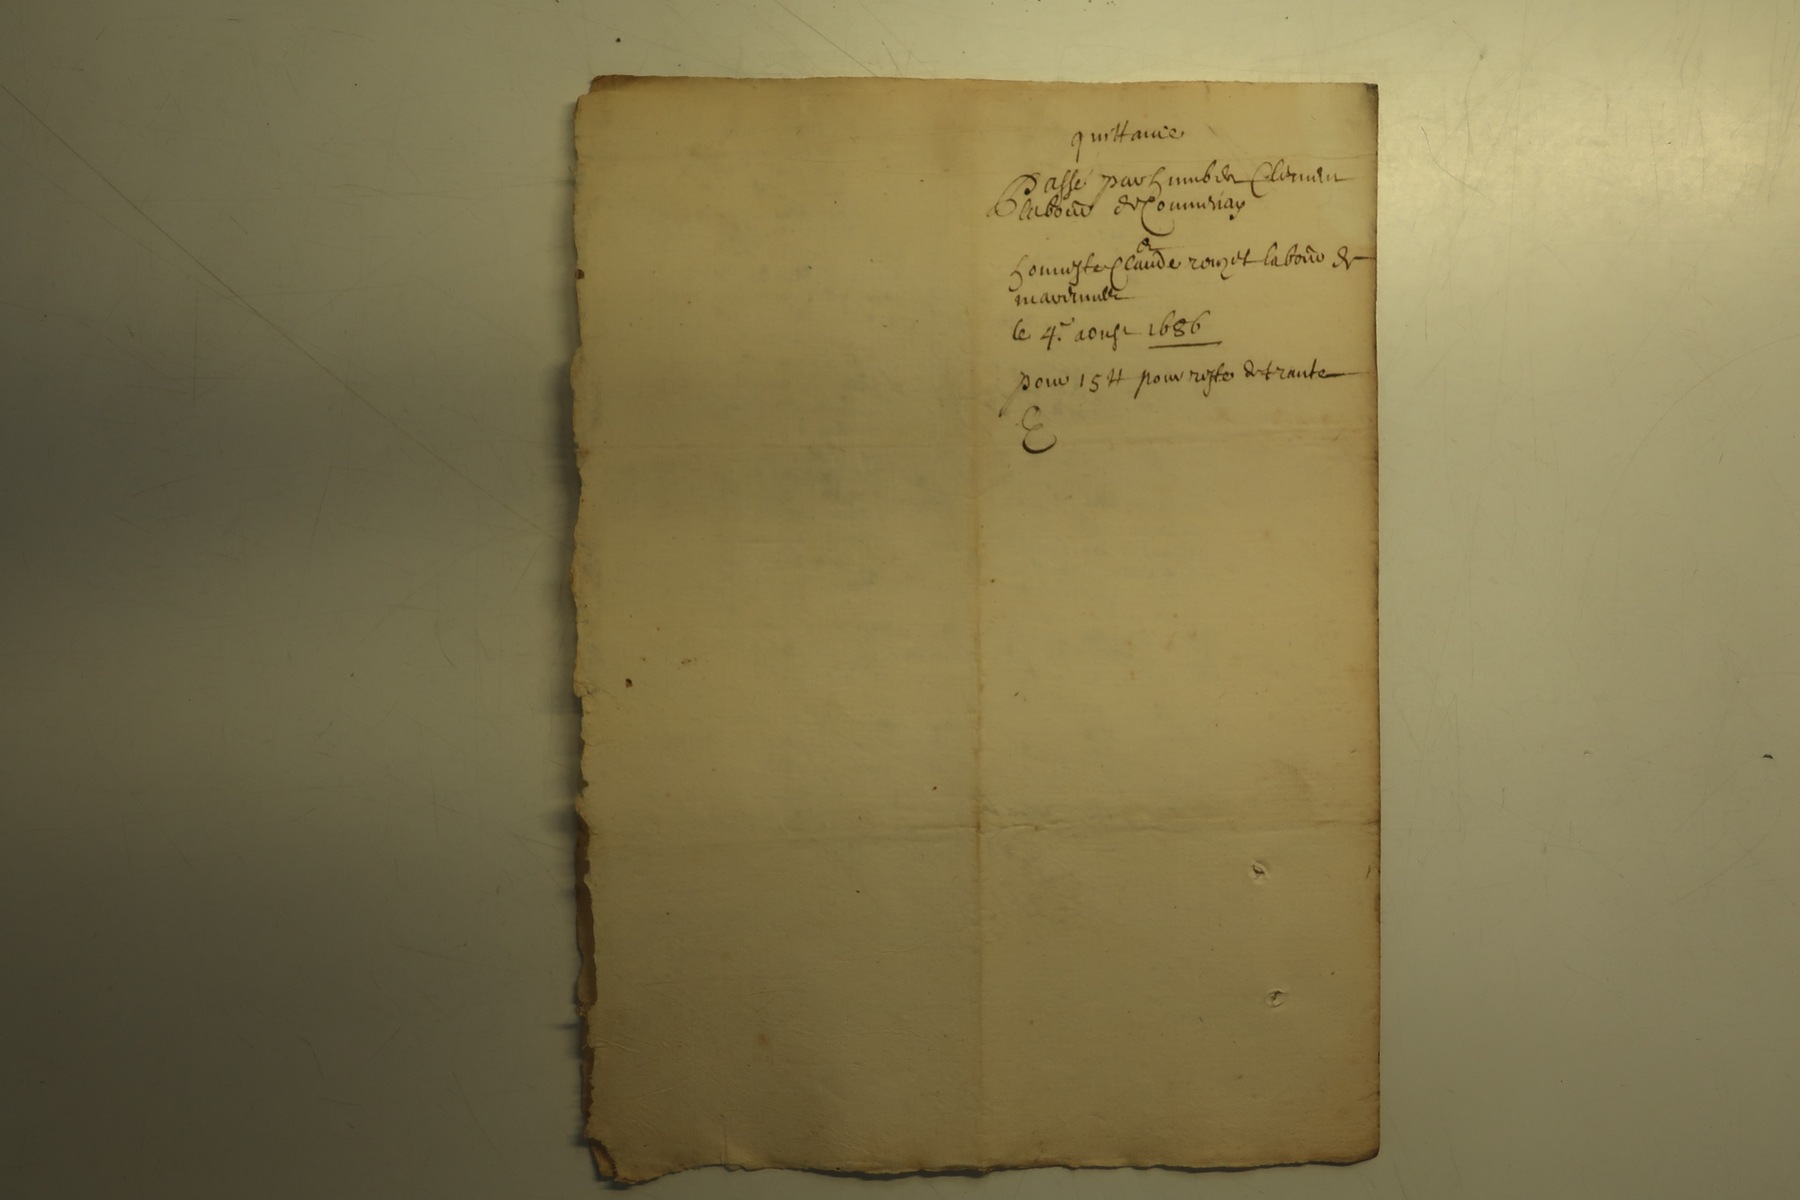 quittance
Passé par humber Clemen
labour de Communay
honneste Claude rouzet labour de
marennes
le 4.e aoust 1686
pour 15 tt pour reste de trante